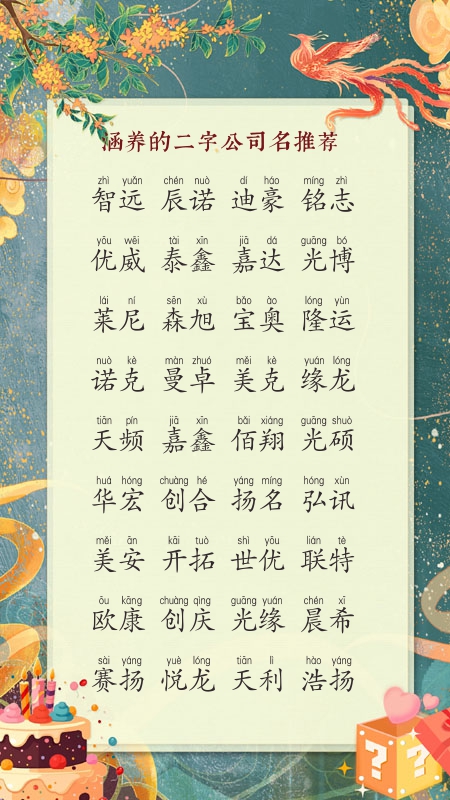 涵养的二字公司名推荐
zhì yuǎn chén nuò dí háo míng zhì
智远 辰诺 迪豪 铭志
yōu wēi tài xīn jiā dá guāng bó
优威 泰鑫 嘉达 光博
lái ní sēn xù bǎo ào lóng yùn
莱尼 森旭 宝奥 隆运
nuò kè màn zhuó měi kè yuán lóng
诺克 曼卓 美克 缘龙
tiān pín jiā xīn bǎi xiáng guāng shuò
天频 嘉鑫 佰翔 光硕
huá hóng chuàng hé yáng míng hóng xùn
华宏 创合 扬名 弘讯
měi ān kāi tuò shì yōu lián tè
美安 开拓 世优 联特
ōu kāng chuàng qìng guāng yuán chén xī
欧康 创庆 光缘 晨希
sài yáng yuè lóng tiān lì hào yáng
赛扬 悦龙 天利 浩扬
? ?